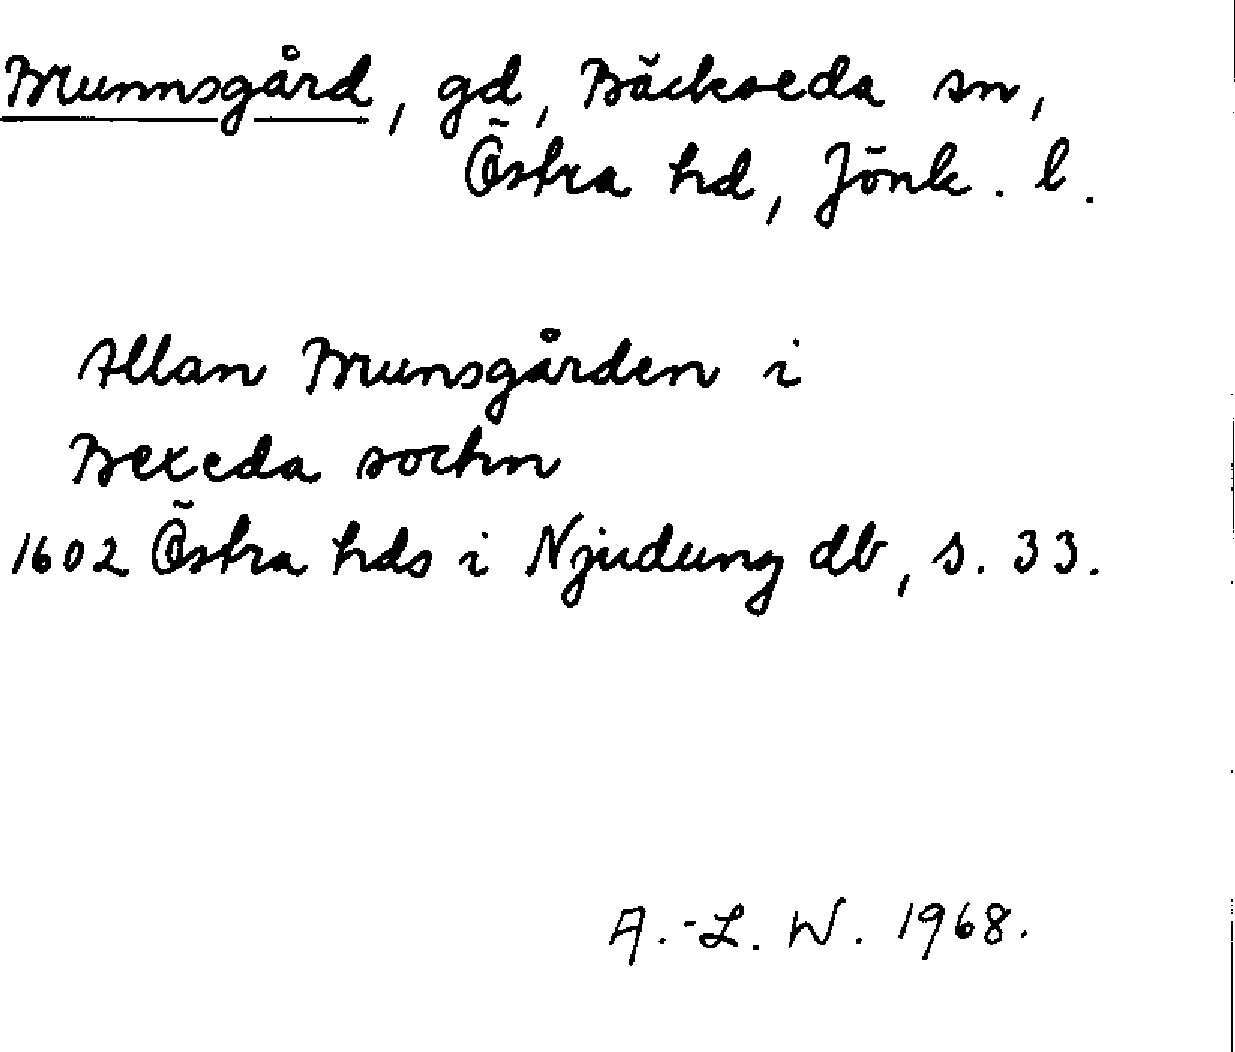 Brunnsgård, gd, Bäckseda sn,
Östra hd, Jönk. l.
Allan Brunsgården i
Bexeda sochn
1602 Östra hds i Njudung db, s. 33.
A.-L. W. 1968.